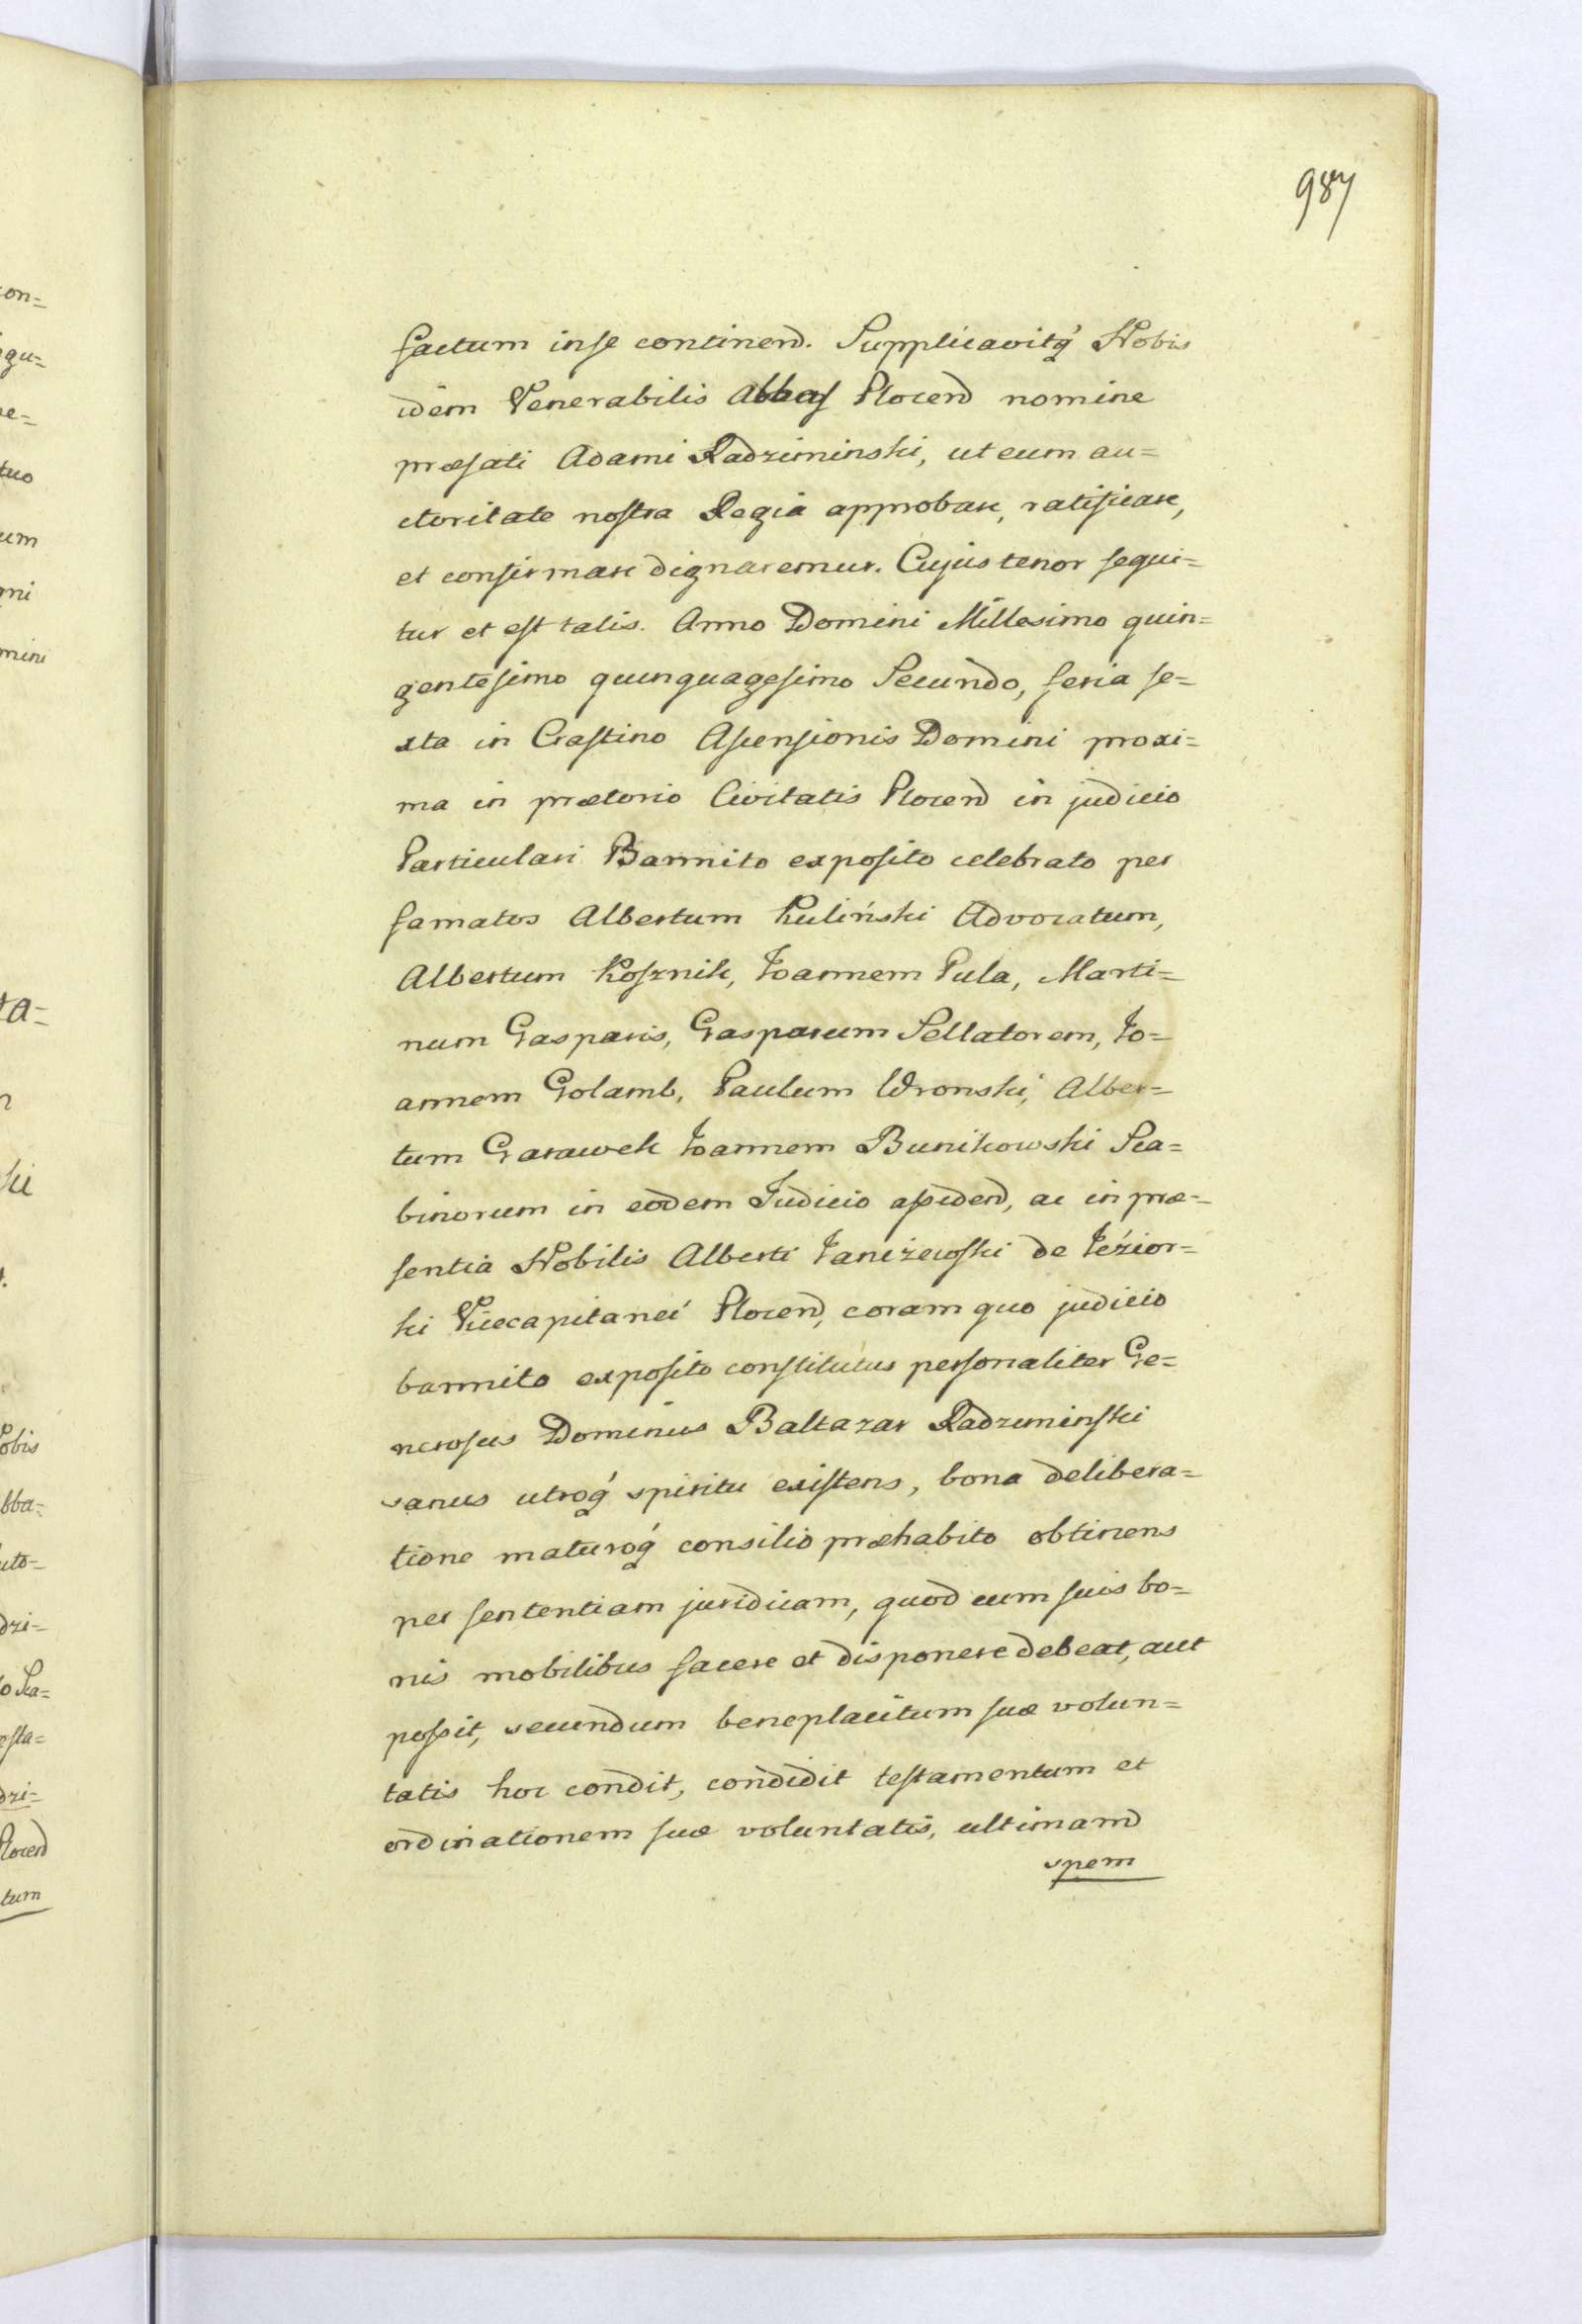 987
factum in se continend. Supplicavitq́ Nobis
idem Venerabilis Abbas Plocend nomine
præfati Adami Radziminski, ut eum au=
ctoritate nostra Regia approbare, ratificare,
et confirmare dignaremur. Cujus tenor sequi=
tur et est talis. Anno Domini Millesimo quin=
gentesimo quinquagesimo Secundo, feria se=
xta in Crastino Ascensionis Domini proxi=
ma in prætorio Civitatis Plocend in judicio
Particulari Bannito exposito celebrato per
famatos Albertum Kuliński Advocatum,
Albertum Kosznik, Joannem Pula, Marti=
num Gasparis, Gasparum Sellatorem, Jo=
annem Golamb, Paulum Wronski, Alber=
tum Garawek Joannem Bunikowski Sca=
binorum in eodem Judicio assidend, ac in præ=
sentia Nobilis Alberti Janiżewski de Jézior=
ki Vicecapitanei Plocend, coram quo judicio
bannito exposito constitutus personaliter Ge=
nerosus Dominus Baltazar Radziminski
sanus utroq́ spiritu existens, bona delibera=
tione maturoq́ consilio præhabito obtinens
per sententiam juridicam, quod cum suis bo=
nis mobilibus facere et disponere debeat, aut
possit, secundum beneplacitum suæ volun=
tatis hoc condit, condidit testamentum et
ordinationem suæ voluntatis, ultimamd
spem
on=
gu=
e=
tuo
um
mi
mini
ra=
n
ki
obis
bba=
uto=
dzi=
o Sca=
esta=
dzi=
Plocend
tum